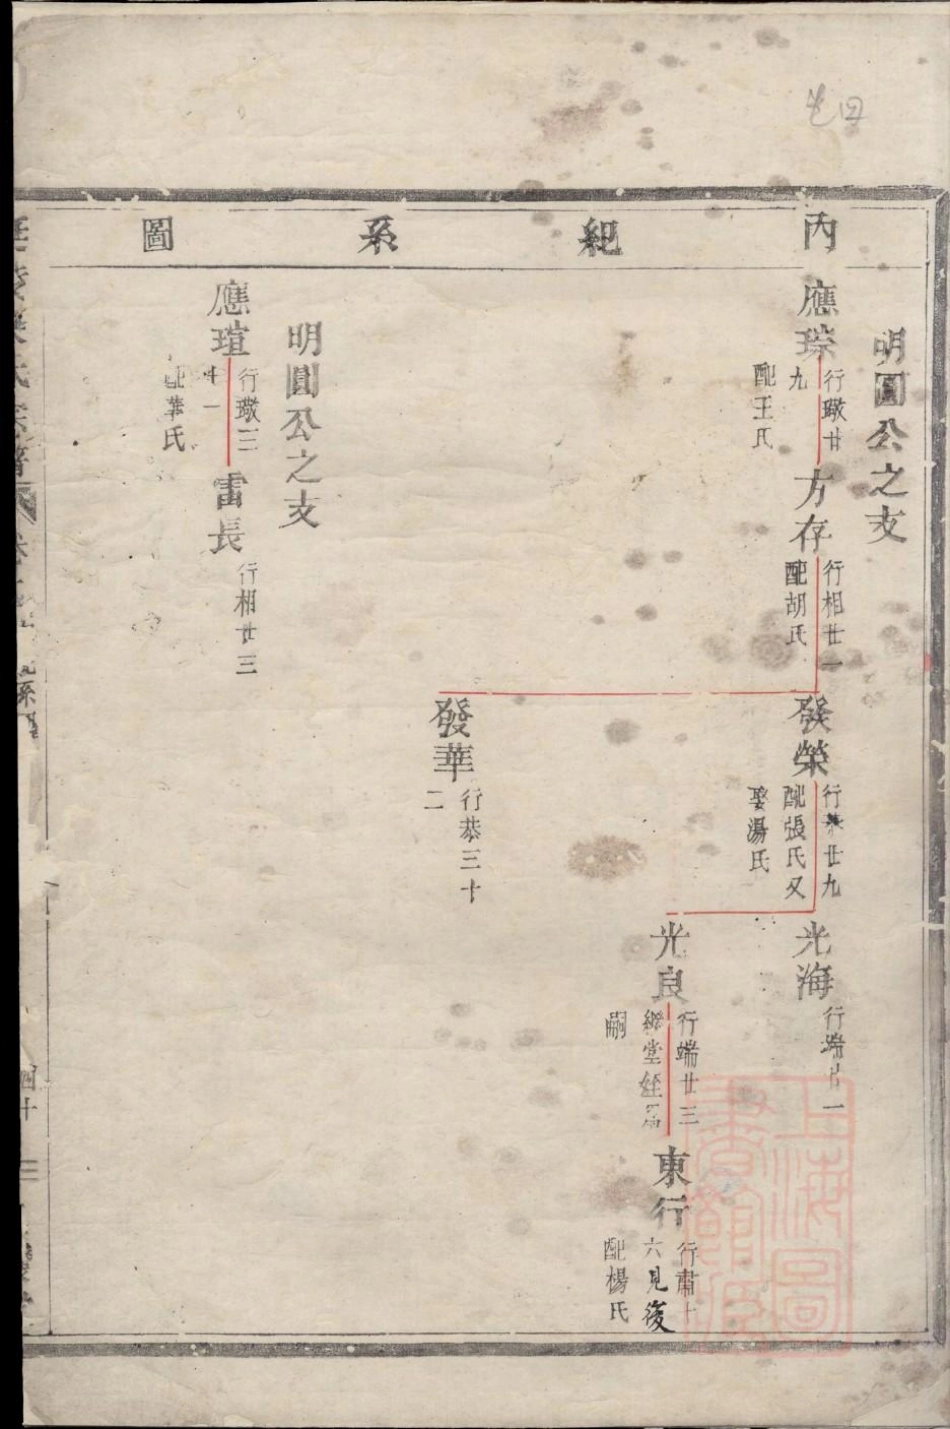 內紀系圖
明圓公之支
應琮
行璬廿
九
配王氏
方存
行相廿一
配胡氏
發榮
行恭廿九
配張氏又
娶湯氏
光海
行端廿一
光良
行端廿三
繼堂姪為
嗣
東行
行肅十
六見後
配楊氏
發華
行恭三十
二
明圓公之支
應瑄
行璬三
十一
配華氏
雷長
行相廿三
上海圖
書館藏